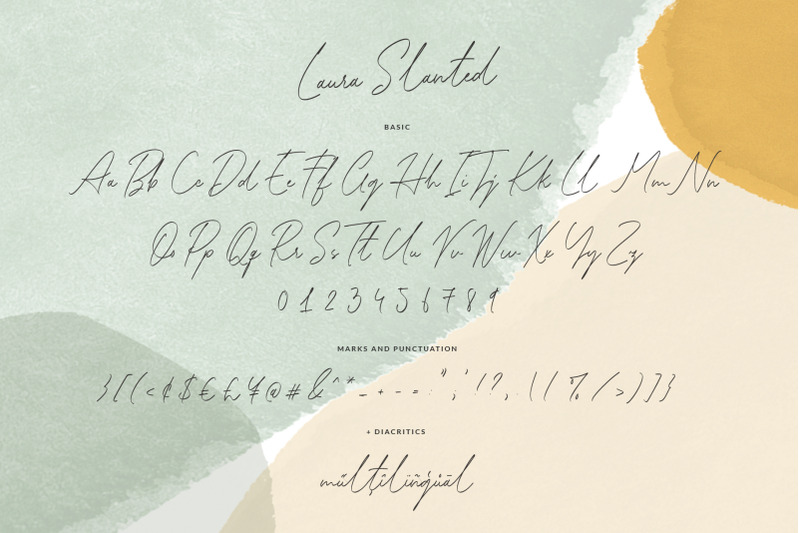 Laura Slanted
BASIC
Aa Bb Cc Dd Ee Ff Gg Hh Ii Jj Kk Ll Mm Nn
Oo Pp Qq Rr Ss Tt Uu Vv Ww Xx Yy Zz
0 1 2 3 4 5 6 7 8 9
MARKS AND PUNCTUATION
}[(<¢$€£¥@#&^*_+-–=:";'!?,.\|%/>)]}
+ DIACRITICS